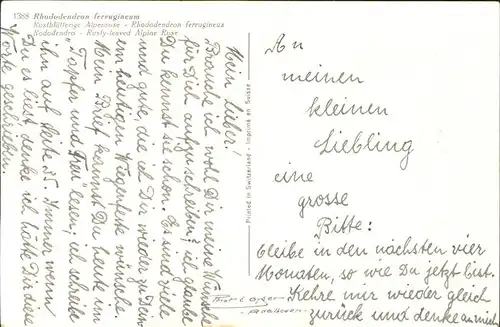 1388 Rhododendron ferrugineum
Rostblättrige Alpenrose - Rhododendron ferrugineux
Rododendro - Rusty-leaved Alpine Rose
Mein lieber!
Brauche ich wohl Dir meine Wünsche
für Dich aufzuschreiben? ich glaube
Du kennst sie schon. Es sind viele
und gute, die ich Dir wieder zu Dem
heutigen Wiegenfeste wünsche.
Mein Brief kannst Du heute im
"Tapfer und Treu" lesen, ich schreibe
ihn auf Seite 35. Immer wenn
Du es liest, denke ich hätte Dir diese
Worte geschrieben.
Printed in Switzerland - Imprimé en Suisse
An
meinen
kleinen
Liebling
eine
grosse
Bitte:
bleibe in den nächsten vier
Monaten, so wie Du jetzt bist.
Kehre mir wieder gleich
zurück und denke an mich